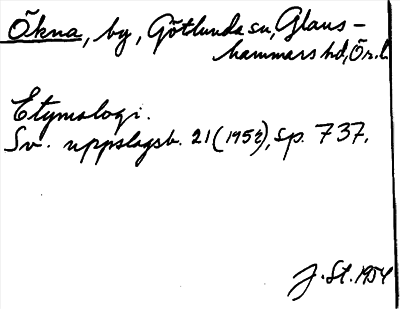 Ökna, by, Götlunda sn, Glans-
hammars hd, Ör.l.
Etymologi.
Sv. uppslagsb. 21 (1952), sp. 737.
J. St. 1954